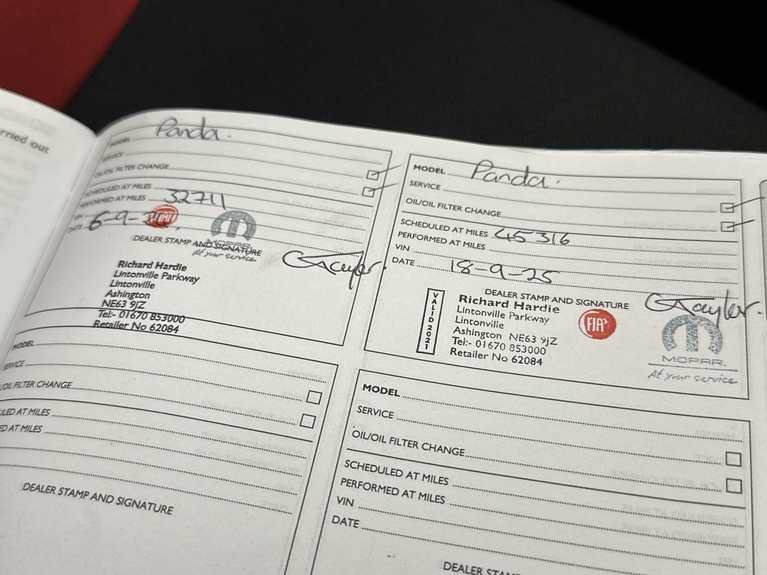 rried out
MODEL Panda.
SERVICE
OIL/OIL FILTER CHANGE
SCHEDULED AT MILES
PERFORMED AT MILES 32711
VIN
DATE 6-9-
FIAT
MOPAR
At your service
DEALER STAMP AND SIGNATURE
GTayler.
Richard Hardie
Lintonville Parkway
Lintonville
Ashington
NE63 9JZ
Tel:- 01670 853000
Retailer No 62084
MODEL Panda.
SERVICE
OIL/OIL FILTER CHANGE
SCHEDULED AT MILES 45316
PERFORMED AT MILES
VIN
DATE 18-9-25
DEALER STAMP AND SIGNATURE
GTayler.
VALID 2021
Richard Hardie
Lintonville Parkway
Lintonville
Ashington NE63 9JZ
Tel:- 01670 853000
Retailer No 62084
FIAT
MOPAR.
At your service
MODEL
SERVICE
OIL/OIL FILTER CHANGE
ULED AT MILES
ED AT MILES
DEALER STAMP AND SIGNATURE
MODEL
SERVICE
OIL/OIL FILTER CHANGE
SCHEDULED AT MILES
PERFORMED AT MILES
VIN
DATE
DEALER STAMP AN